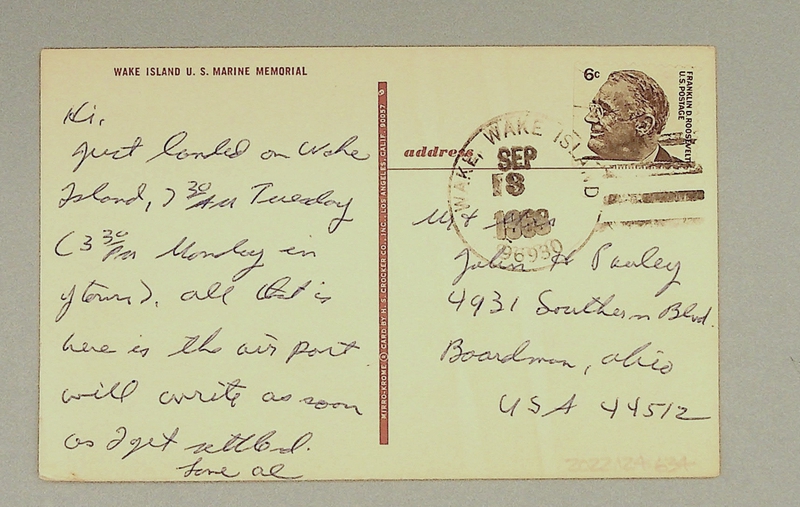 WAKE ISLAND U. S. MARINE MEMORIAL
Hi,
Just landed on Wake
Island, 7 30 AM Tuesday
(3 30 PM Monday in
ytown). all that is
here is the air port
will write as soon
as I get settled.
Love al
MIRRO-KROME ® CARD BY H. S. CROCKER CO., INC., LOS ANGELES, CALIF. 90057
address
6c
FRANKLIN D. ROOSEVELT
U.S. POSTAGE
WAKE, WAKE ISLAND
SEP
1969
96930
Mr + Mrs
John H Pauley
4931 Southern Blvd.
Boardman, ohio
USA 44512